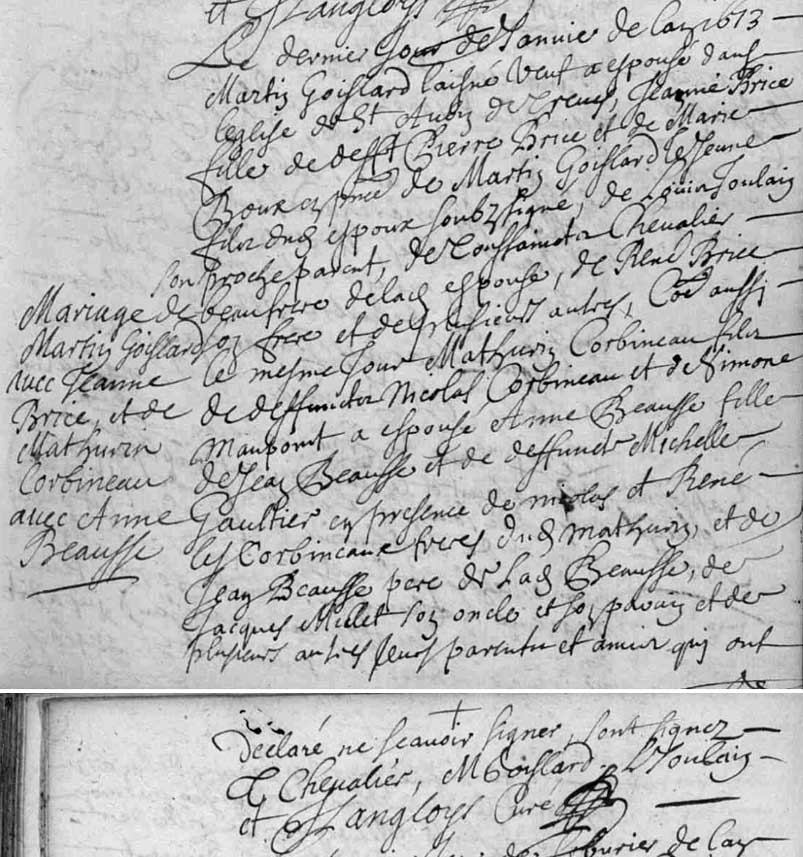 et Langloys
Le dernier Jour de Janvier de l'an 1673
Martin Goislard laisné veuf a espousé dans
leglise de St Aubin de Jeanne Brice
fille de defft Pierre Brice et de Marie
Roux en pnce de Martin Goislard le Jeune
filz dud espoux soubzsigné, de Louis Toulain
son proche parent, de Toussainctz Chevalier
beaufrere de lad espouse, de René Brice
son frere et de plusieurs autres, Cõe aussi
le mesme Jour Mathurin Corbineau filz
de deffunctz Nicolas Corbineau et de Simone
Maupoint a espousé Anne Beausse fille
de Jean Beausse et de deffuncte Michelle
Gaultier en presence de nicolas et René
les Corbineaux freres dud mathurin, et de
Jean Beausse pere de lad Beausse, de
Jacques Millet son oncle et son parain et de
plusieurs autres leurs parentz et amis qui ont
Mariage de
Martin Goislard
avec Jeanne
Brice, et de
Mathurin
Corbineau
avec Anne
Beausse
declaré ne scavoir signer, sont signez
T Chevalier, M Goislard. L Toulain
et Langloys Curé
de l'an